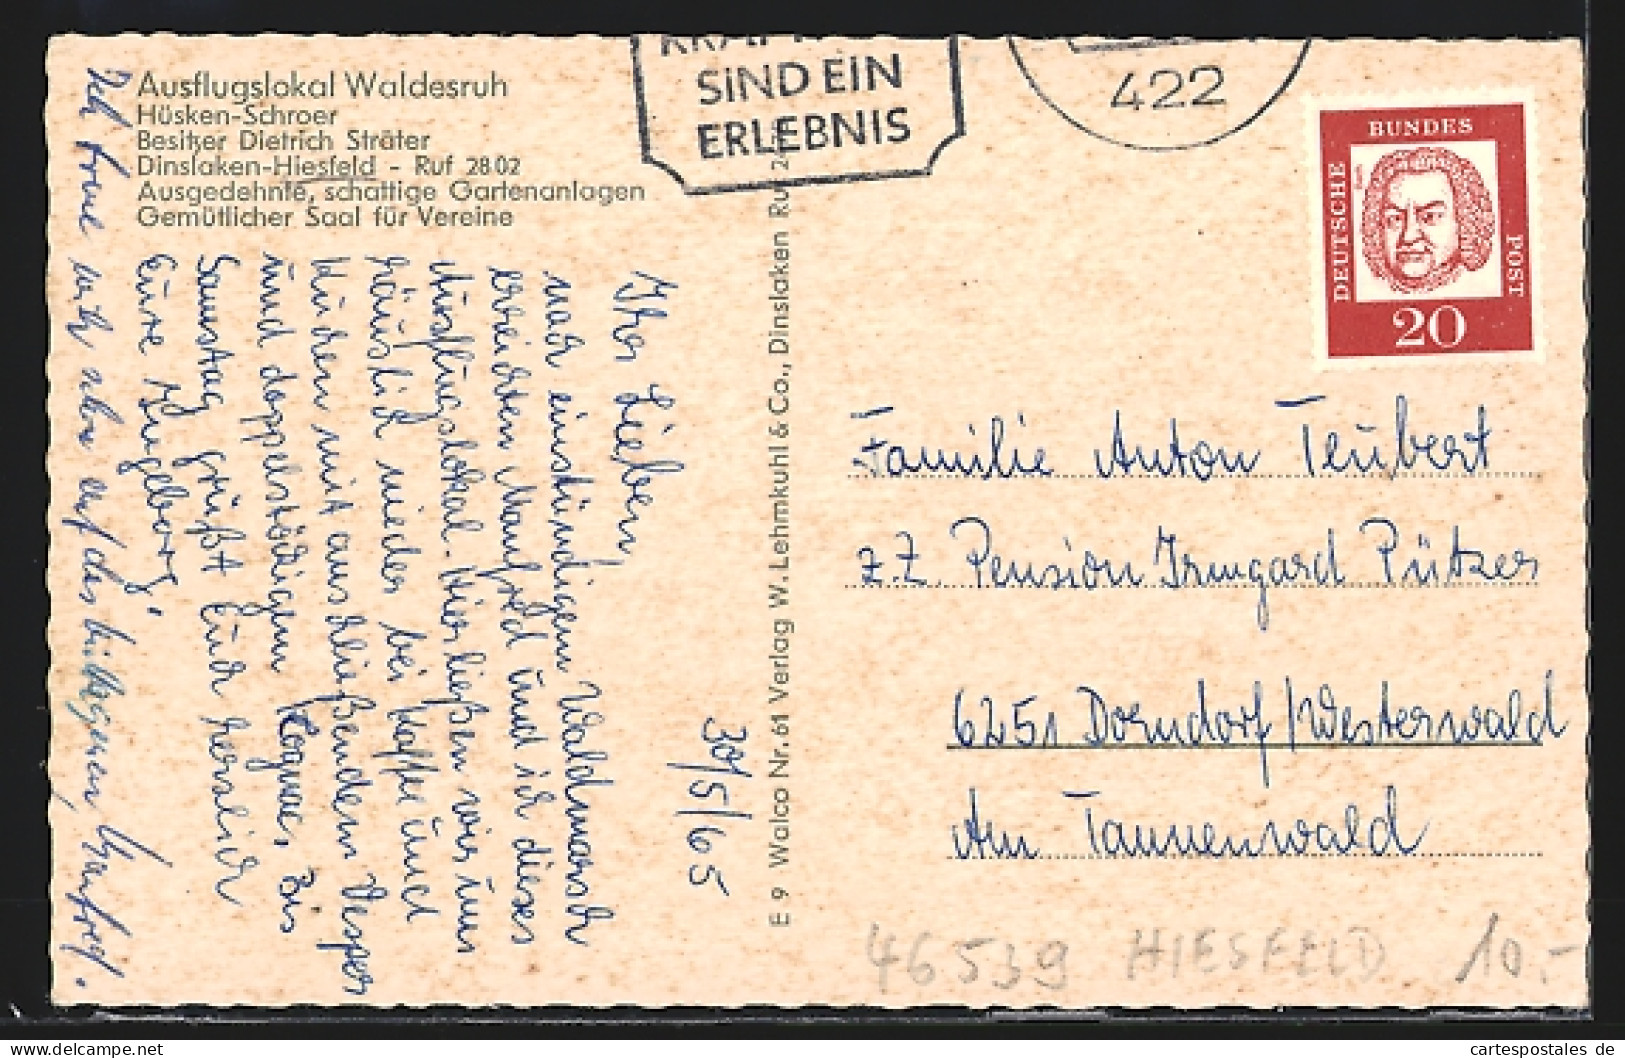 Ausflugslokal Waldesruh
Hüsken-Schroer
Besitzer Dietrich Sträter
Dinslaken-Hiesfeld - Ruf 2802
Ausgedehnte, schattige Gartenanlagen
Gemütlicher Saal für Vereine
SIND EIN
ERLEBNIS
422
DEUTSCHE
BUNDES
POST
20
30/5/65
Ihr Lieben,
nach einstündigem Waldmarsch
erreichten Manfred und ich dieses
Ausflugslokal. Hier ließen wir uns
häuslich nieder bei Kaffee und
Kuchen mit anschließendem Vesper
und doppelstöckigem Cognac. Bis
Samstag grüßt Euch herzlich
Eure Ingeborg.
Ich freue mich schon auf das
Manfred.
E 9 Walco Nr. 61 Verlag W. Lehmkuhl & Co., Dinslaken Ruf
Familie Anton Teubert
z. Z. Pension Irmgard Pützer
6251 Dorndorf/Westerwald
Am Tannenwald
46539 HIESFELD 10.-
cartespostales de
the-collector